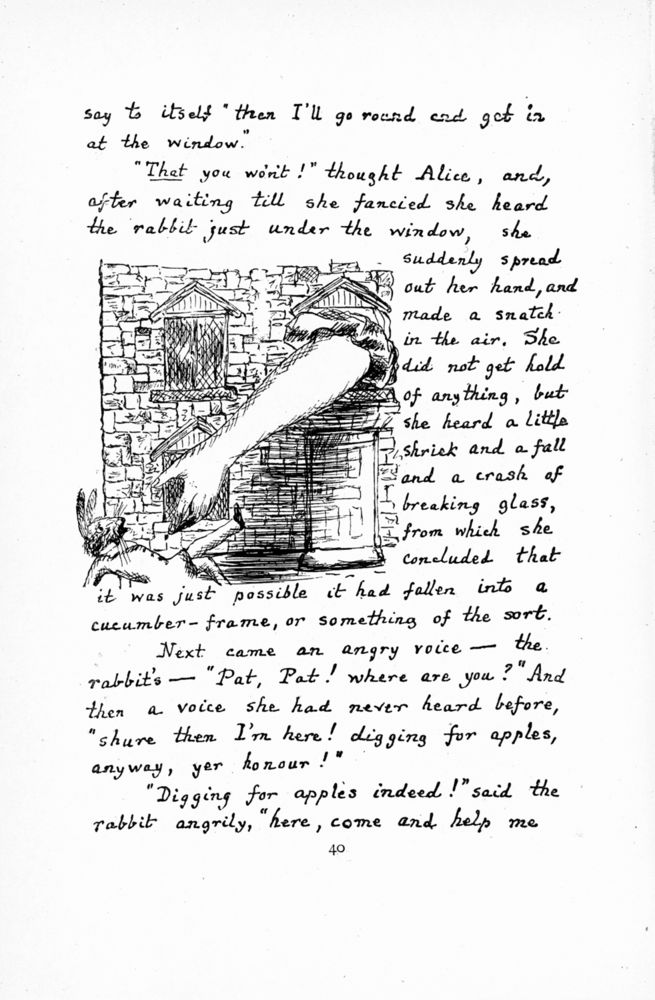 say to itself "then I'll go round and get in
at the window."
"That you wo'n't!" thought Alice, and,
after waiting till she fancied she heard
the rabbit just under the window, she
suddenly spread
out her hand, and
made a snatch
in the air. She
did not get hold
of anything, but
she heard a little
shriek and a fall
and a crash of
breaking glass,
from which she
concluded that
it was just possible it had fallen into a
cucumber-frame, or something of the sort.
Next came an angry voice — the
rabbit's — "Pat, Pat! where are you?" And
then a voice she had never heard before,
"shure then I'm here! digging for apples,
anyway, yer honour!"
"Digging for apples indeed!" said the
rabbit angrily, "here, come and help me
40